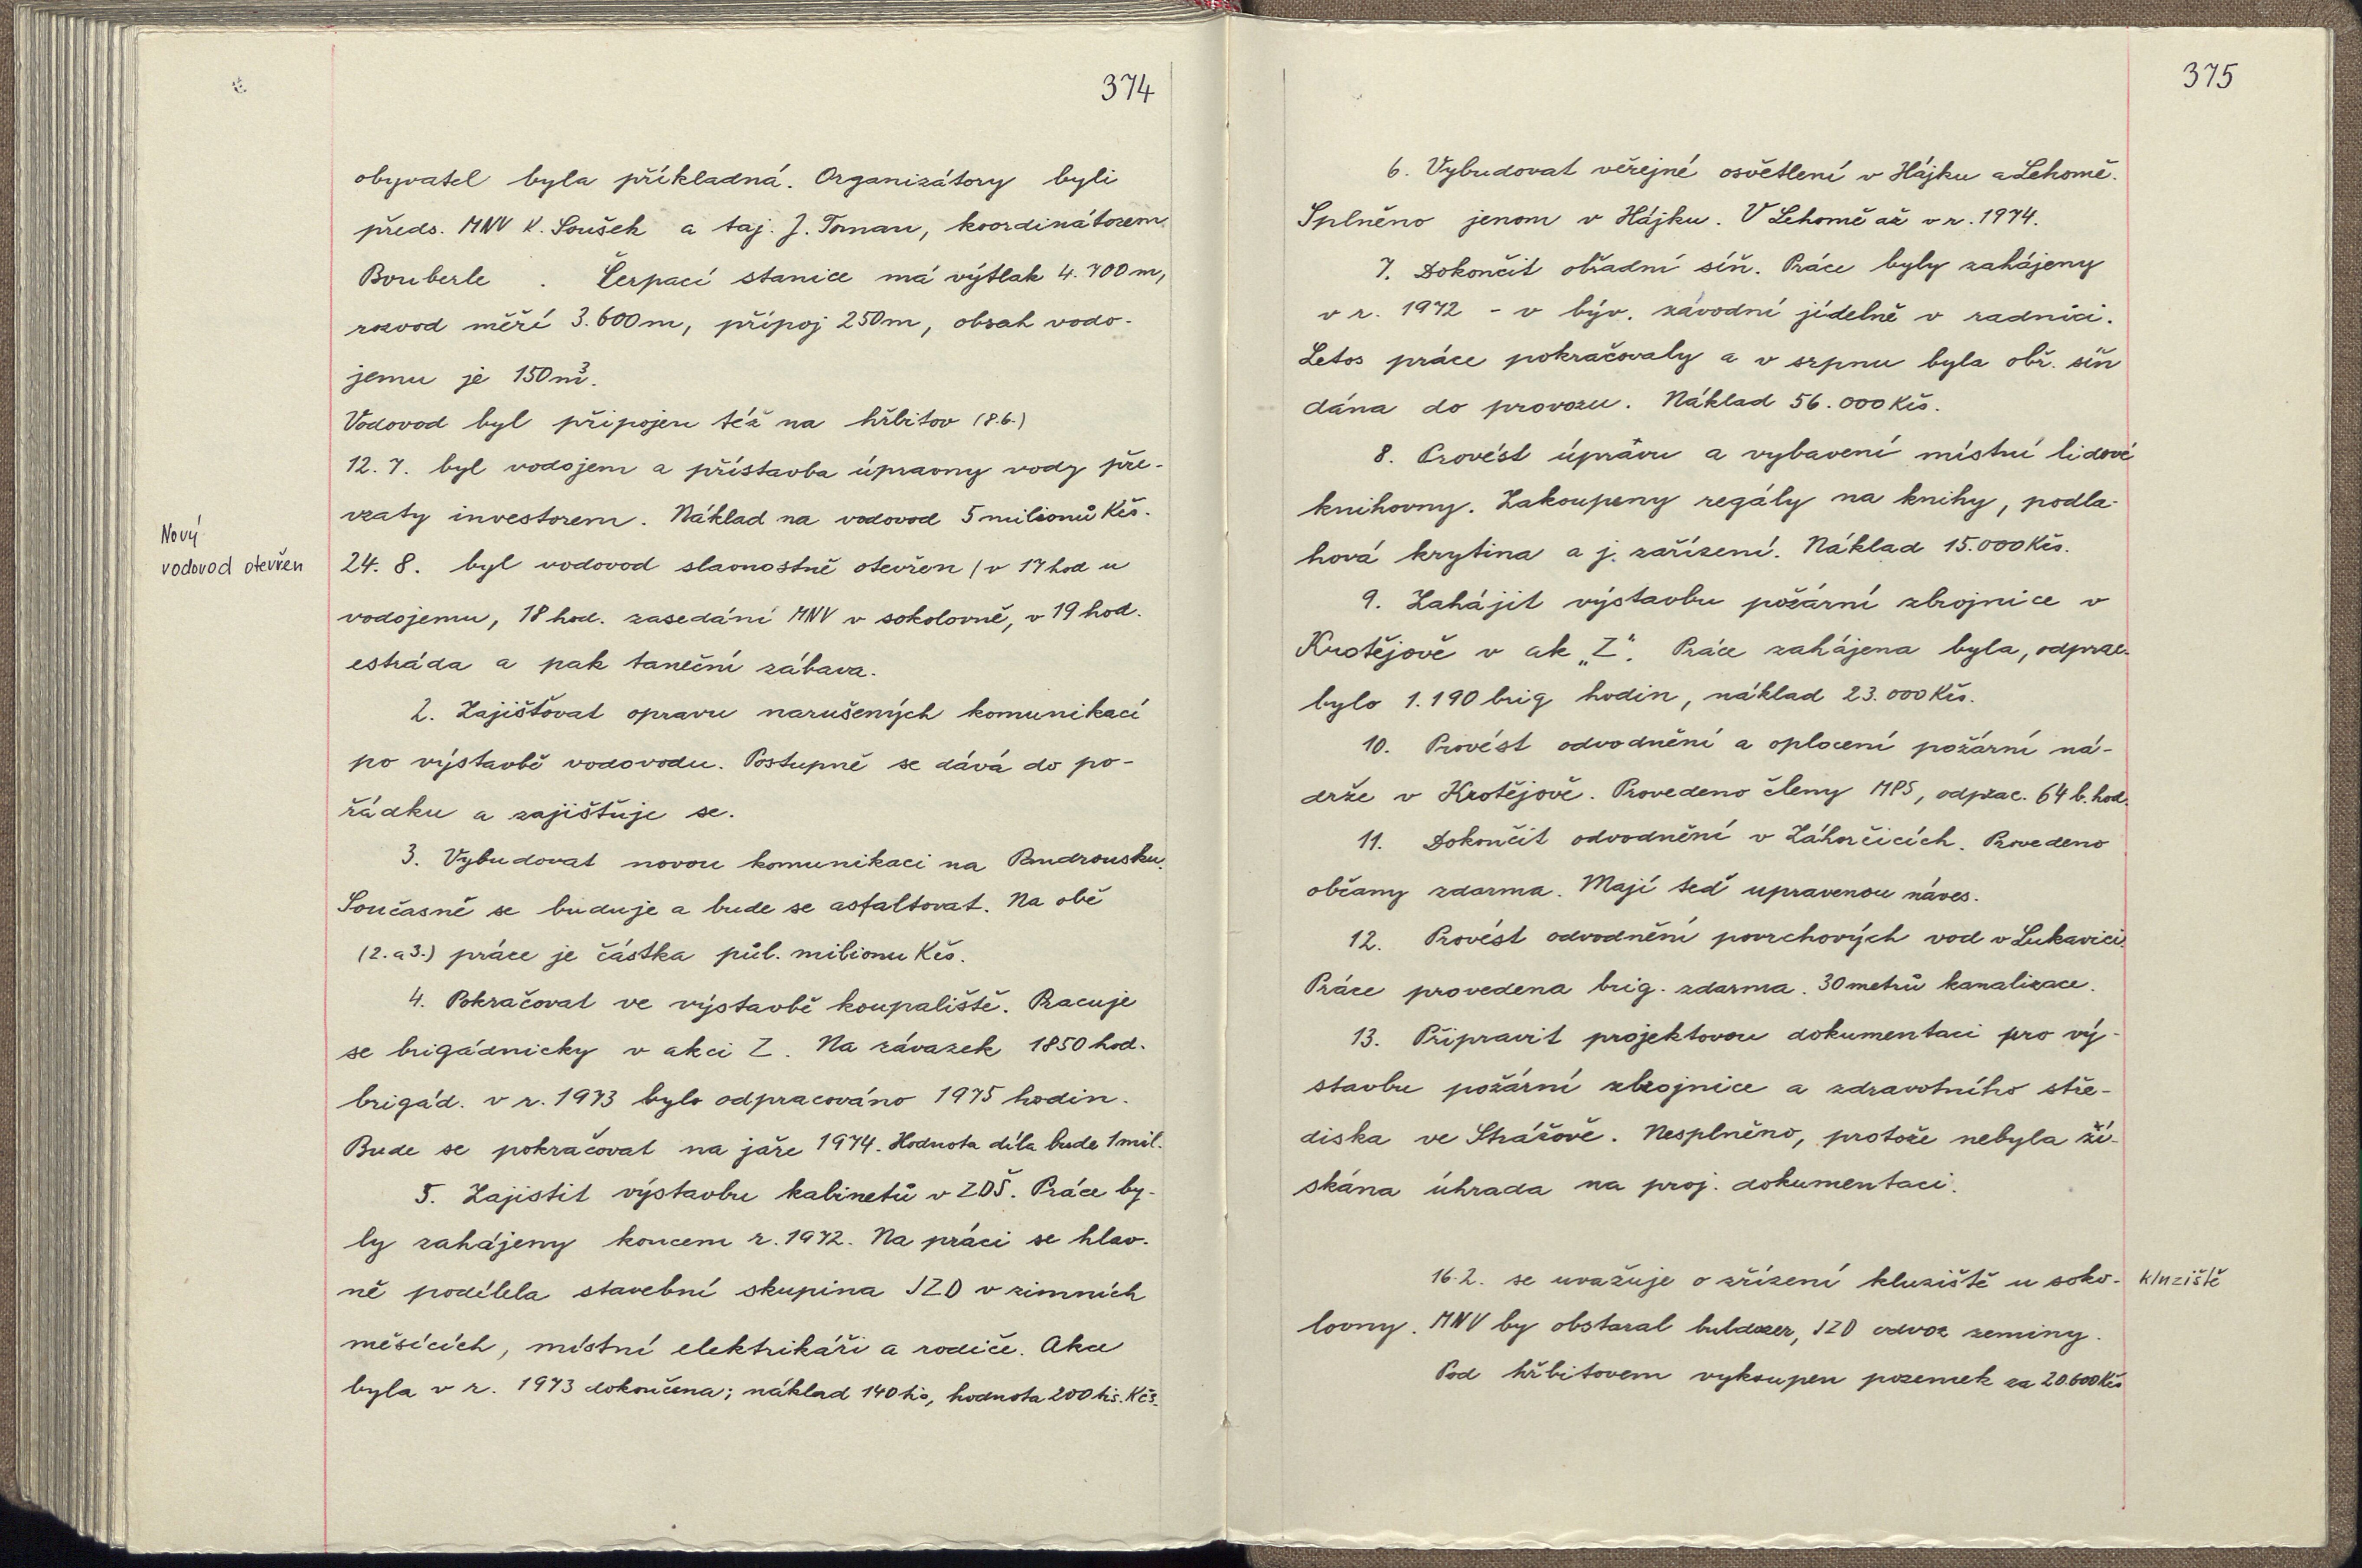 374
obyvatel byla příkladná. Organizátory byli
předs. MNV K. Soušek a taj. J. Toman, koordinátorem
Bouberle . Čerpací stanice má výtlak 4.700 m,
rozvod měří 3.600 m, přípoj 250 m, obsah vodo-
jemu je 150 m³.
Vodovod byl připojen též na hřbitov (8.6.)
12. 7. byl vodojem a přístavba úpravny vody pře-
vzaty investorem. Náklad na vodovod 5 milionů Kčs.
Nový
vodovod otevřen
24. 8. byl vodovod slavnostně otevřen / v 17 hod u
vodojemu, 18 hod. zasedání MNV v sokolovně, v 19 hod.
estráda a pak taneční zábava.
2. Zajišťovat opravu narušených komunikací
po výstavbě vodovodu. Postupně se dává do po-
řádku a zajišťuje se.
3. Vybudovat novou komunikaci na Pandrousku.
Současně se buduje a bude se asfaltovat. Na obě
(2. a 3.) práce je částka půl. milionu Kčs.
4. Pokračovat ve výstavbě koupaliště. Pracuje
se brigádnicky v akci Z. Na závazek 1850 hod.
brigád. v r. 1973 bylo odpracováno 1975 hodin.
Bude se pokračovat na jaře 1974. Hodnota díla bude 1 mil.
5. Zajistit výstavbu kabinetů v ZDŠ. Práce by-
ly zahájeny koncem r. 1972. Na práci se hlav-
ně podílela stavební skupina JZD v zimních
měsících, místní elektrikáři a rodiče. Akce
byla v r. 1973 dokončena; náklad 140 tis, hodnota 200 tis. Kčs.
375
6. Vybudovat veřejné osvětlení v Hájku a Lehomě.
Splněno jenom v Hájku. V Lehomě až v r. 1974.
7. Dokončit obřadní síň. Práce byly zahájeny
v r. 1972 - v býv. závodní jídelně v radnici.
Letos práce pokračovaly a v srpnu byla obř. síň
dána do provozu. Náklad 56.000 Kčs.
8. Provést úpravu a vybavení místní lidové
knihovny. Zakoupeny regály na knihy, podla-
hová krytina a j. zařízení. Náklad 15.000 Kčs.
9. Zahájit výstavbu požární zbrojnice v
Krotějově v ak „Z“. Práce zahájena byla, odprac.
bylo 1.190 brig hodin, náklad 23.000 Kčs.
10. Provést odvodnění a oplocení požární ná-
drže v Krotějově. Provedeno členy MPS, odprac. 64 b. hod.
11. Dokončit odvodnění v Záhorčicích. Provedeno
občany zdarma. Mají teď upravenou náves.
12. Provést odvodnění povrchových vod v Lukavici.
Práce provedena brig. zdarma. 30 metrů kanalizace.
13. Připravit projektovou dokumentaci pro vý-
stavbu požární zbrojnice a zdravotního stře-
diska ve Strážově. Nesplněno, protože nebyla zí-
skána úhrada na proj. dokumentaci.
16. 2. se uvažuje o zřízení kluziště u soko-
kluziště
lovny. MNV by obstaral buldozer, JZD odvoz zeminy.
Pod hřbitovem vykoupen pozemek za 20.600 Kčs